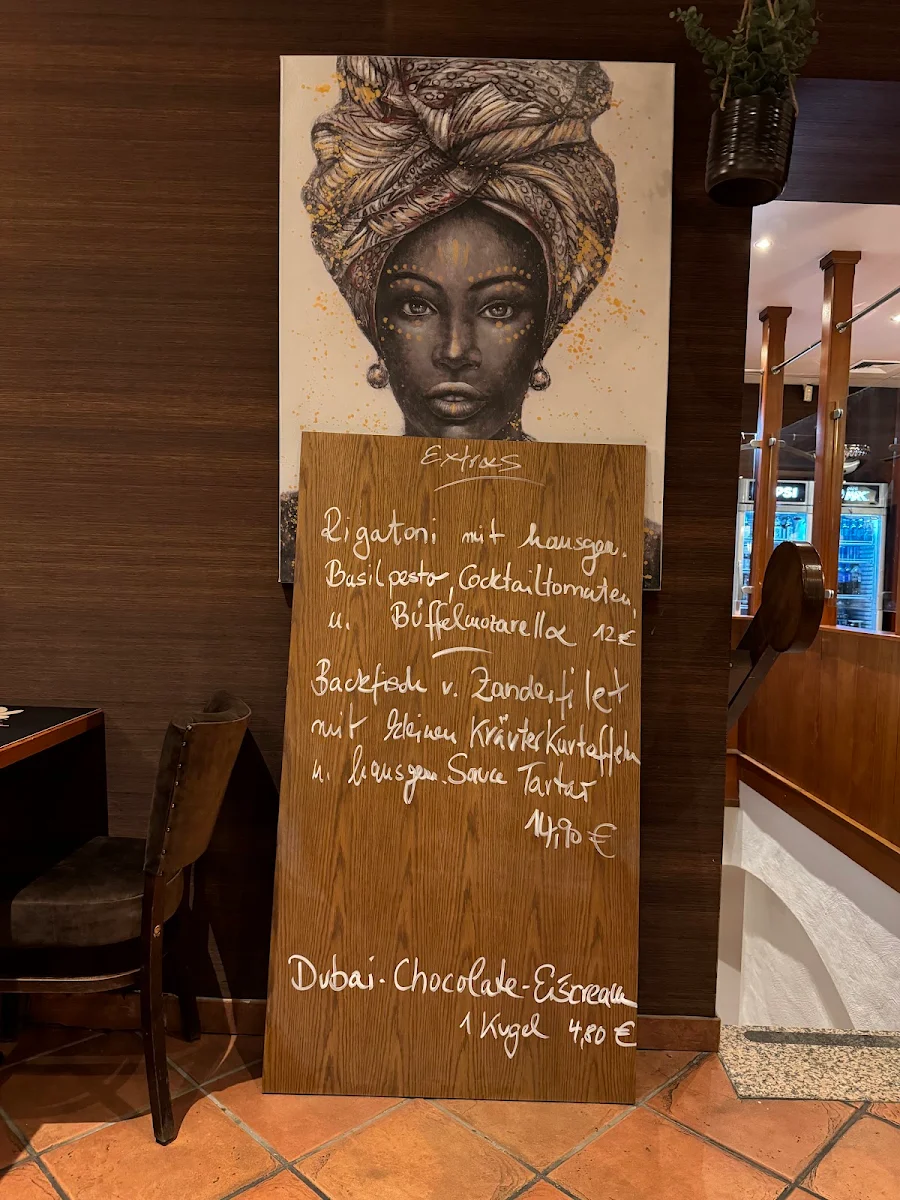 Extras
Rigatoni mit hausgem.
Basilpesto, Cocktailtomaten,
u. Büffelmozarella 12€
Backfisch v. Zanderfilet
mit kleinen Kräuterkartoffeln
u. hausgem. Sauce Tartar
14,90 €
Dubai-Chocolate-Eiscream
1 Kugel 4,80 €
PSI